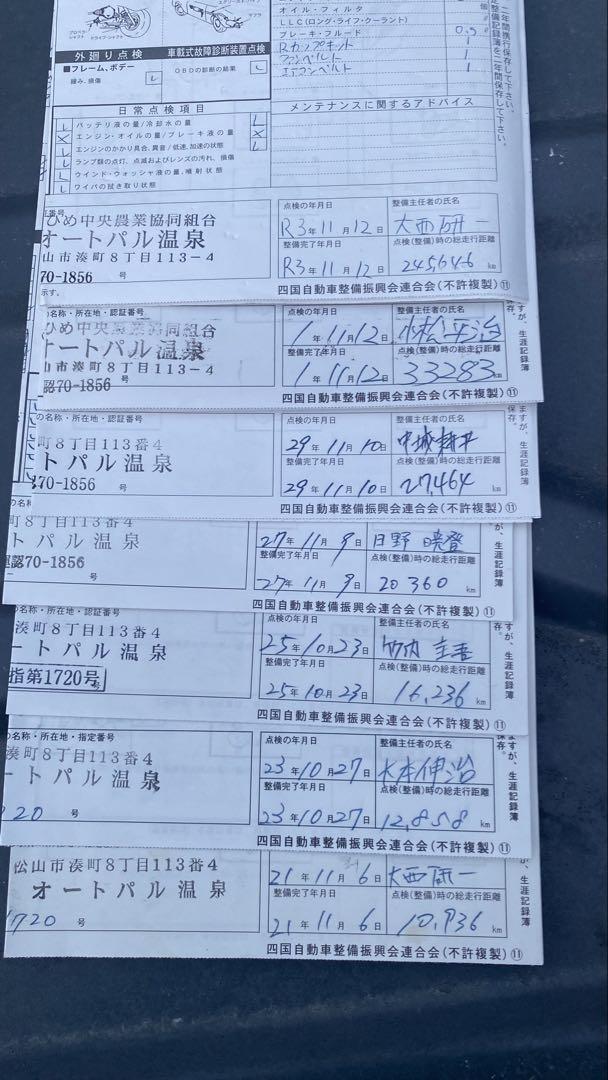 オイル・フィルタ
LLC(ロング・ライフ・クーラント)
ブレーキ・フルード 0.5
Rカップキット 1
ファンベルト 1
エアコンベルト 1
外廻り点検
車載式故障診断装置点検
■フレーム、ボデー
緩み、損傷 L
OBDの診断の結果 L
日常点検項目
メンテナンスに関するアドバイス
L バッテリ液の量/冷却水の量 L
X エンジン・オイルの量/ブレーキ液の量 X
L エンジンのかかり具合、異音/低速、加速の状態 L
L ランプ類の点灯、点滅およびレンズの汚れ、損傷
L ウインド・ウォッシャ液の量、噴射状態
L ワイパの拭き取り状態
ひめ中央農業協同組合
オートパル温泉
山市湊町8丁目113-4
70-1856 号
点検の年月日
R3年11月12日
整備主任者の氏名
大西研一
整備完了年月日
R3年11月12日
点検(整備)時の総走行距離
km
四国自動車整備振興会連合会(不許複製)⑪
の名称・所在地・認証番号
ひめ中央農業協同組合
ートパル温泉
山市湊町8丁目113-4
認70-1856 号
点検の年月日
1年11月12日
整備主任者の氏名
小松
整備完了年月日
1年11月12日
点検(整備)時の総走行距離
33283 km
四国自動車整備振興会連合会(不許複製)⑪
の名称・所在地・認証番号
町8丁目113番4
ートパル温泉
70-1856 号
点検の年月日
29年11月10日
整備主任者の氏名
中城耕平
整備完了年月日
29年11月10日
点検(整備)時の総走行距離
27,464 km
四国自動車整備振興会連合会(不許複製)⑪
町8丁目113番4
ートパル温泉
認70-1856 号
27年11月9日
日野
整備完了年月日
27年11月9日
点検(整備)時の総走行距離
20360 km
四国自動車整備振興会連合会(不許複製)⑪
の名称・所在地・認証番号
湊町8丁目113番4
ートパル温泉
指第1720号
点検の年月日
25年10月23日
整備主任者の氏名
竹内
整備完了年月日
25年10月23日
点検(整備)時の総走行距離
16,236 km
四国自動車整備振興会連合会(不許複製)⑪
の名称・所在地・指定番号
湊町8丁目113番4
ートパル温泉
20 号
点検の年月日
23年10月27日
整備主任者の氏名
大本伸治
整備完了年月日
23年10月27日
点検(整備)時の総走行距離
12,858 km
四国自動車整備振興会連合会(不許複製)⑪
松山市湊町8丁目113番4
オートパル温泉
1720 号
21年11月6日
大西研一
整備完了年月日
21年11月6日
点検(整備)時の総走行距離
10,936 km
四国自動車整備振興会連合会(不許複製)⑪